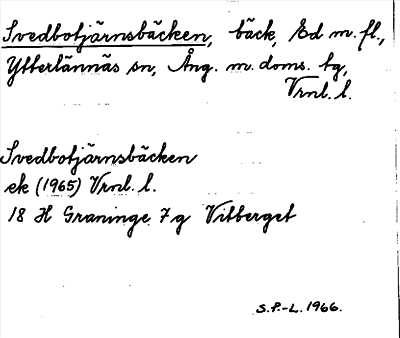 Svedbotjärnsbäcken, bäck, Ed m. fl.,
Ytterlännäs sn, Ång. m. doms. tg,
Vrnl. l.
Svedbotjärnsbäcken
ek (1965) Vrnl. l.
18 H Graninge 7 g Vitberget
S.P.-L. 1966.